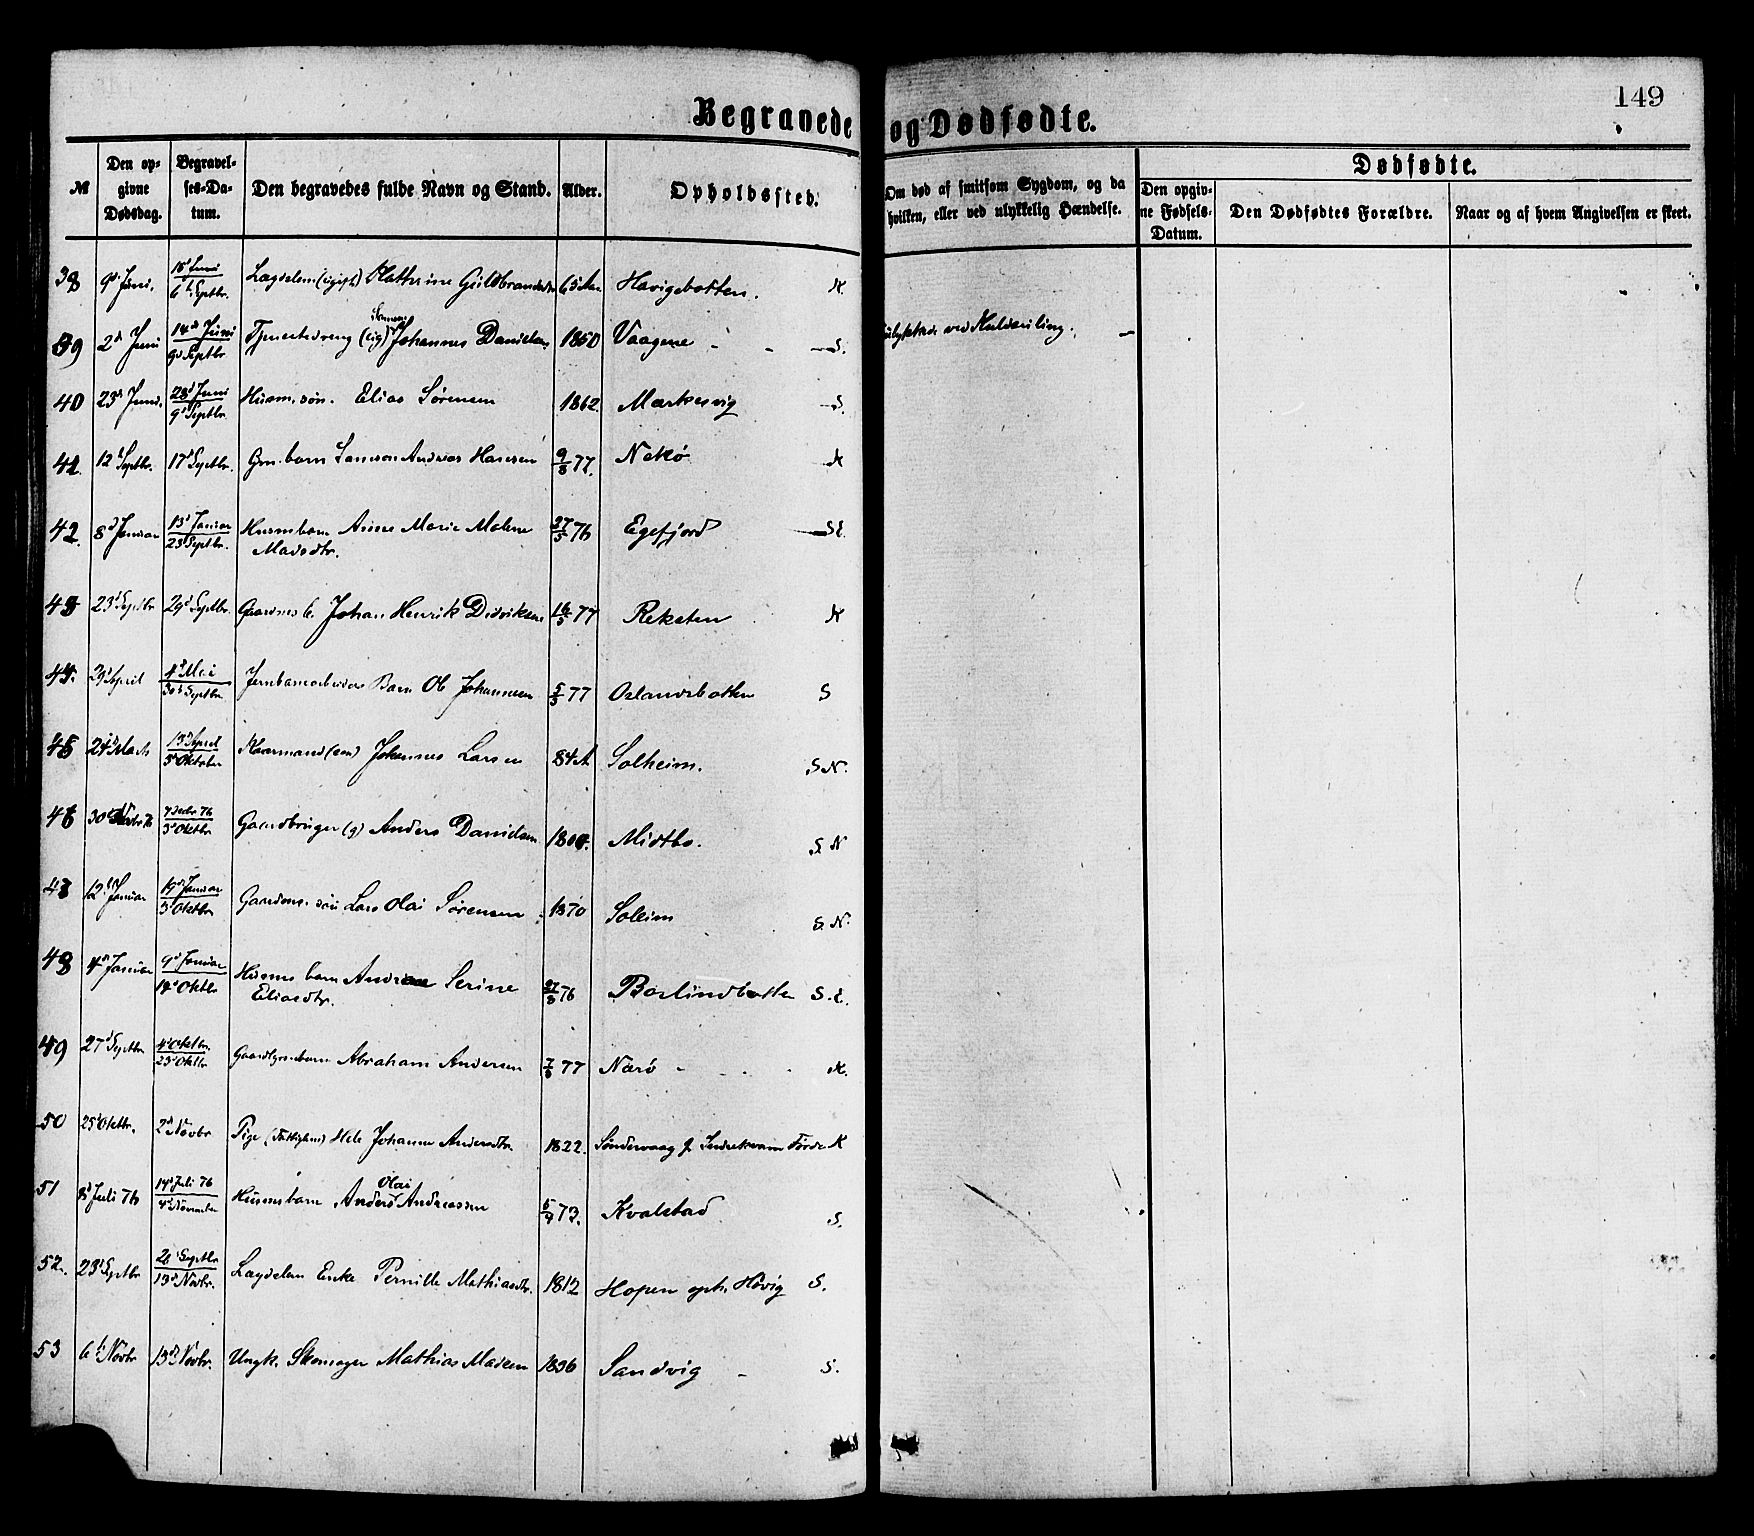 149
Begravede og Dødfødte.
№
Den op-
givne
Dødsdag.
Begravel-
ses-Da-
tum.
Den begravedes fulde Navn og Stand.
Alder.
Opholdssted.
Om død af smitsom Sygdom, og da
hvilken, eller ved ulykkelig Hændelse.
Dødfødte.
Den opgiv-
ne Fødsels-
Datum.
Den Dødfødtes Forældre.
Naar og af hvem Angivelsen er skeet.
38 9d Juni. 15d Juni 6t Septbr. Lægdslem (ugift) Guldbrandsdtr 65 Aar Havigebotten. N.
39 2d Juni 14d Juni 9d Septbr Tjenestedreng (ug) Johannes Danielsen 1850 Vaagene S.
40 23d Juni. 28d Juni 9d Septbr. Husm. søn. Elias Sørensen 1862. Markesvig S.
41 12t Septbr. 17d Septbr. Grm. barn Andreas Hansen 9/8 77. Nekø N
42. 8d Januar 13d Januar 23d Septbr. Husmbarn Anne Marie Malene
Madsdtr. 27/5 76 Egefjord S.E.
43 23d Septbr 29d Septbr. Gaardms b. Johan Henrik Didriksen 16/5 77 Reksten N
44. 29d April 4d Mai 30d Septbr Barn Ole Johannesen 5/3 77 Oslandsbotten S
45 24d Marts 13d April 5d Oktober Kaarmand (em) Johannes Larsen 84 A Solheim. S. N.
46 7 Decbr 76 3d Oktbr. Gaardbruger (g) Anders Danielsen Midtbø. S. N
47 12t Januar 19d Januar 3d Oktbr Gaardm. søn Lars Olai Sørensen 1870 Soleim S. N.
48 4d Januar 9d Januar 14d Oktbr Husms barn Serine
Eliasdtr. 27/8 76 Boslindbotten S. E.
49 27d Septbr 4d Oktbr. 25d Oktbr Abraham Andersen 7/8 77 Nærø N.
50 25d Oktbr. 2d Novbr Pige (Fattiglem) Johanne Andersdtr. 1822. Søndervaag Førde N
51 8d Juli 76 14d Juli 76 4d November Husmsbarn Anders Olai Andreassen 5/9 73. Kvalstad S.
52. 23d Septbr 28 Septbr 13d Novbr. Lægdslem Enke Pernille Mathiasdtr. 1812 Hopen oph. Høvig S.
53 6t Novbr 13d Novbr. Ungk. Skomager Mathias Madsen 1836 Sandvig S.